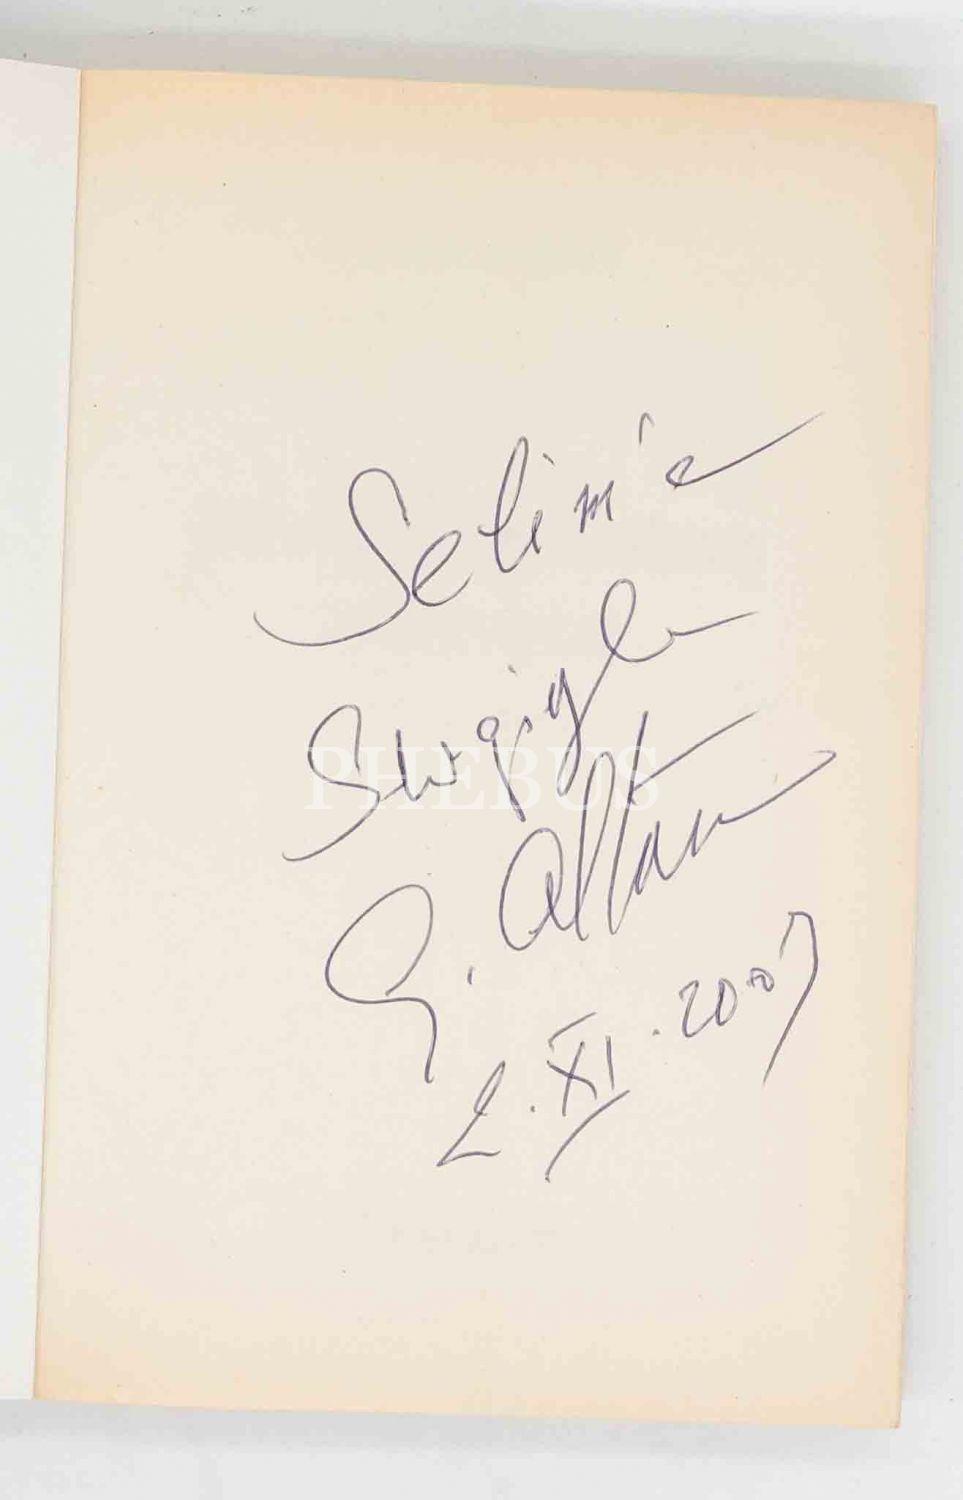 Selim'e
Sevgiyle
Ç. Altan
2.XI.2007
PHEBUS